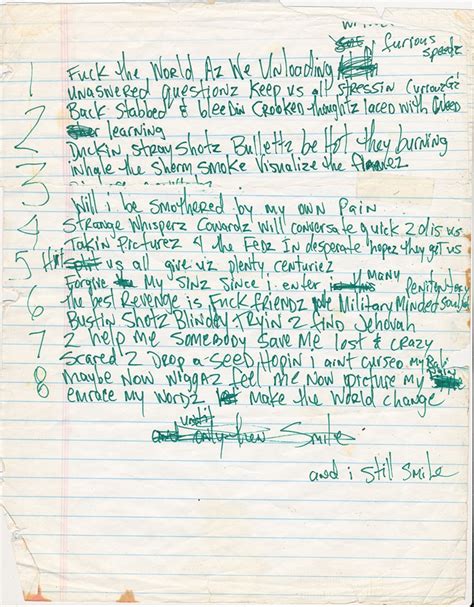 furious
speedz
1 Fuck the World Az We Unloading
unaswered questionz keep us all stressin curiousez
Back Stabbed & bleedin Crooked thoughtz laced with weed
2 learning
Duckin stray shotz Bullettz be Hot they burning
inhale the sherm smoke visualize the flamez
3
Will i be smothered by my own Pain
4 Strange Whisperz Cowardz will conversate quick 2 dis us
Takin Picturez 4 the Fedz In desperate hopez they get us
5 Hit us all give uz plenty centuriez
Forgive My Sinz Since i enter many penitentiary
6 the best Revenge is Fuck friendz Military Minded
Bustin Shotz Blindley Tryin 2 find Jehovah
7 2 help me Somebody Save Me lost & crazy
Scared 2 Drop a seed Hopin i aint cursed my
8 maybe Now Niggaz feel me Now picture my
emrace my Wordz make the World change
until
Smile
and i still smile